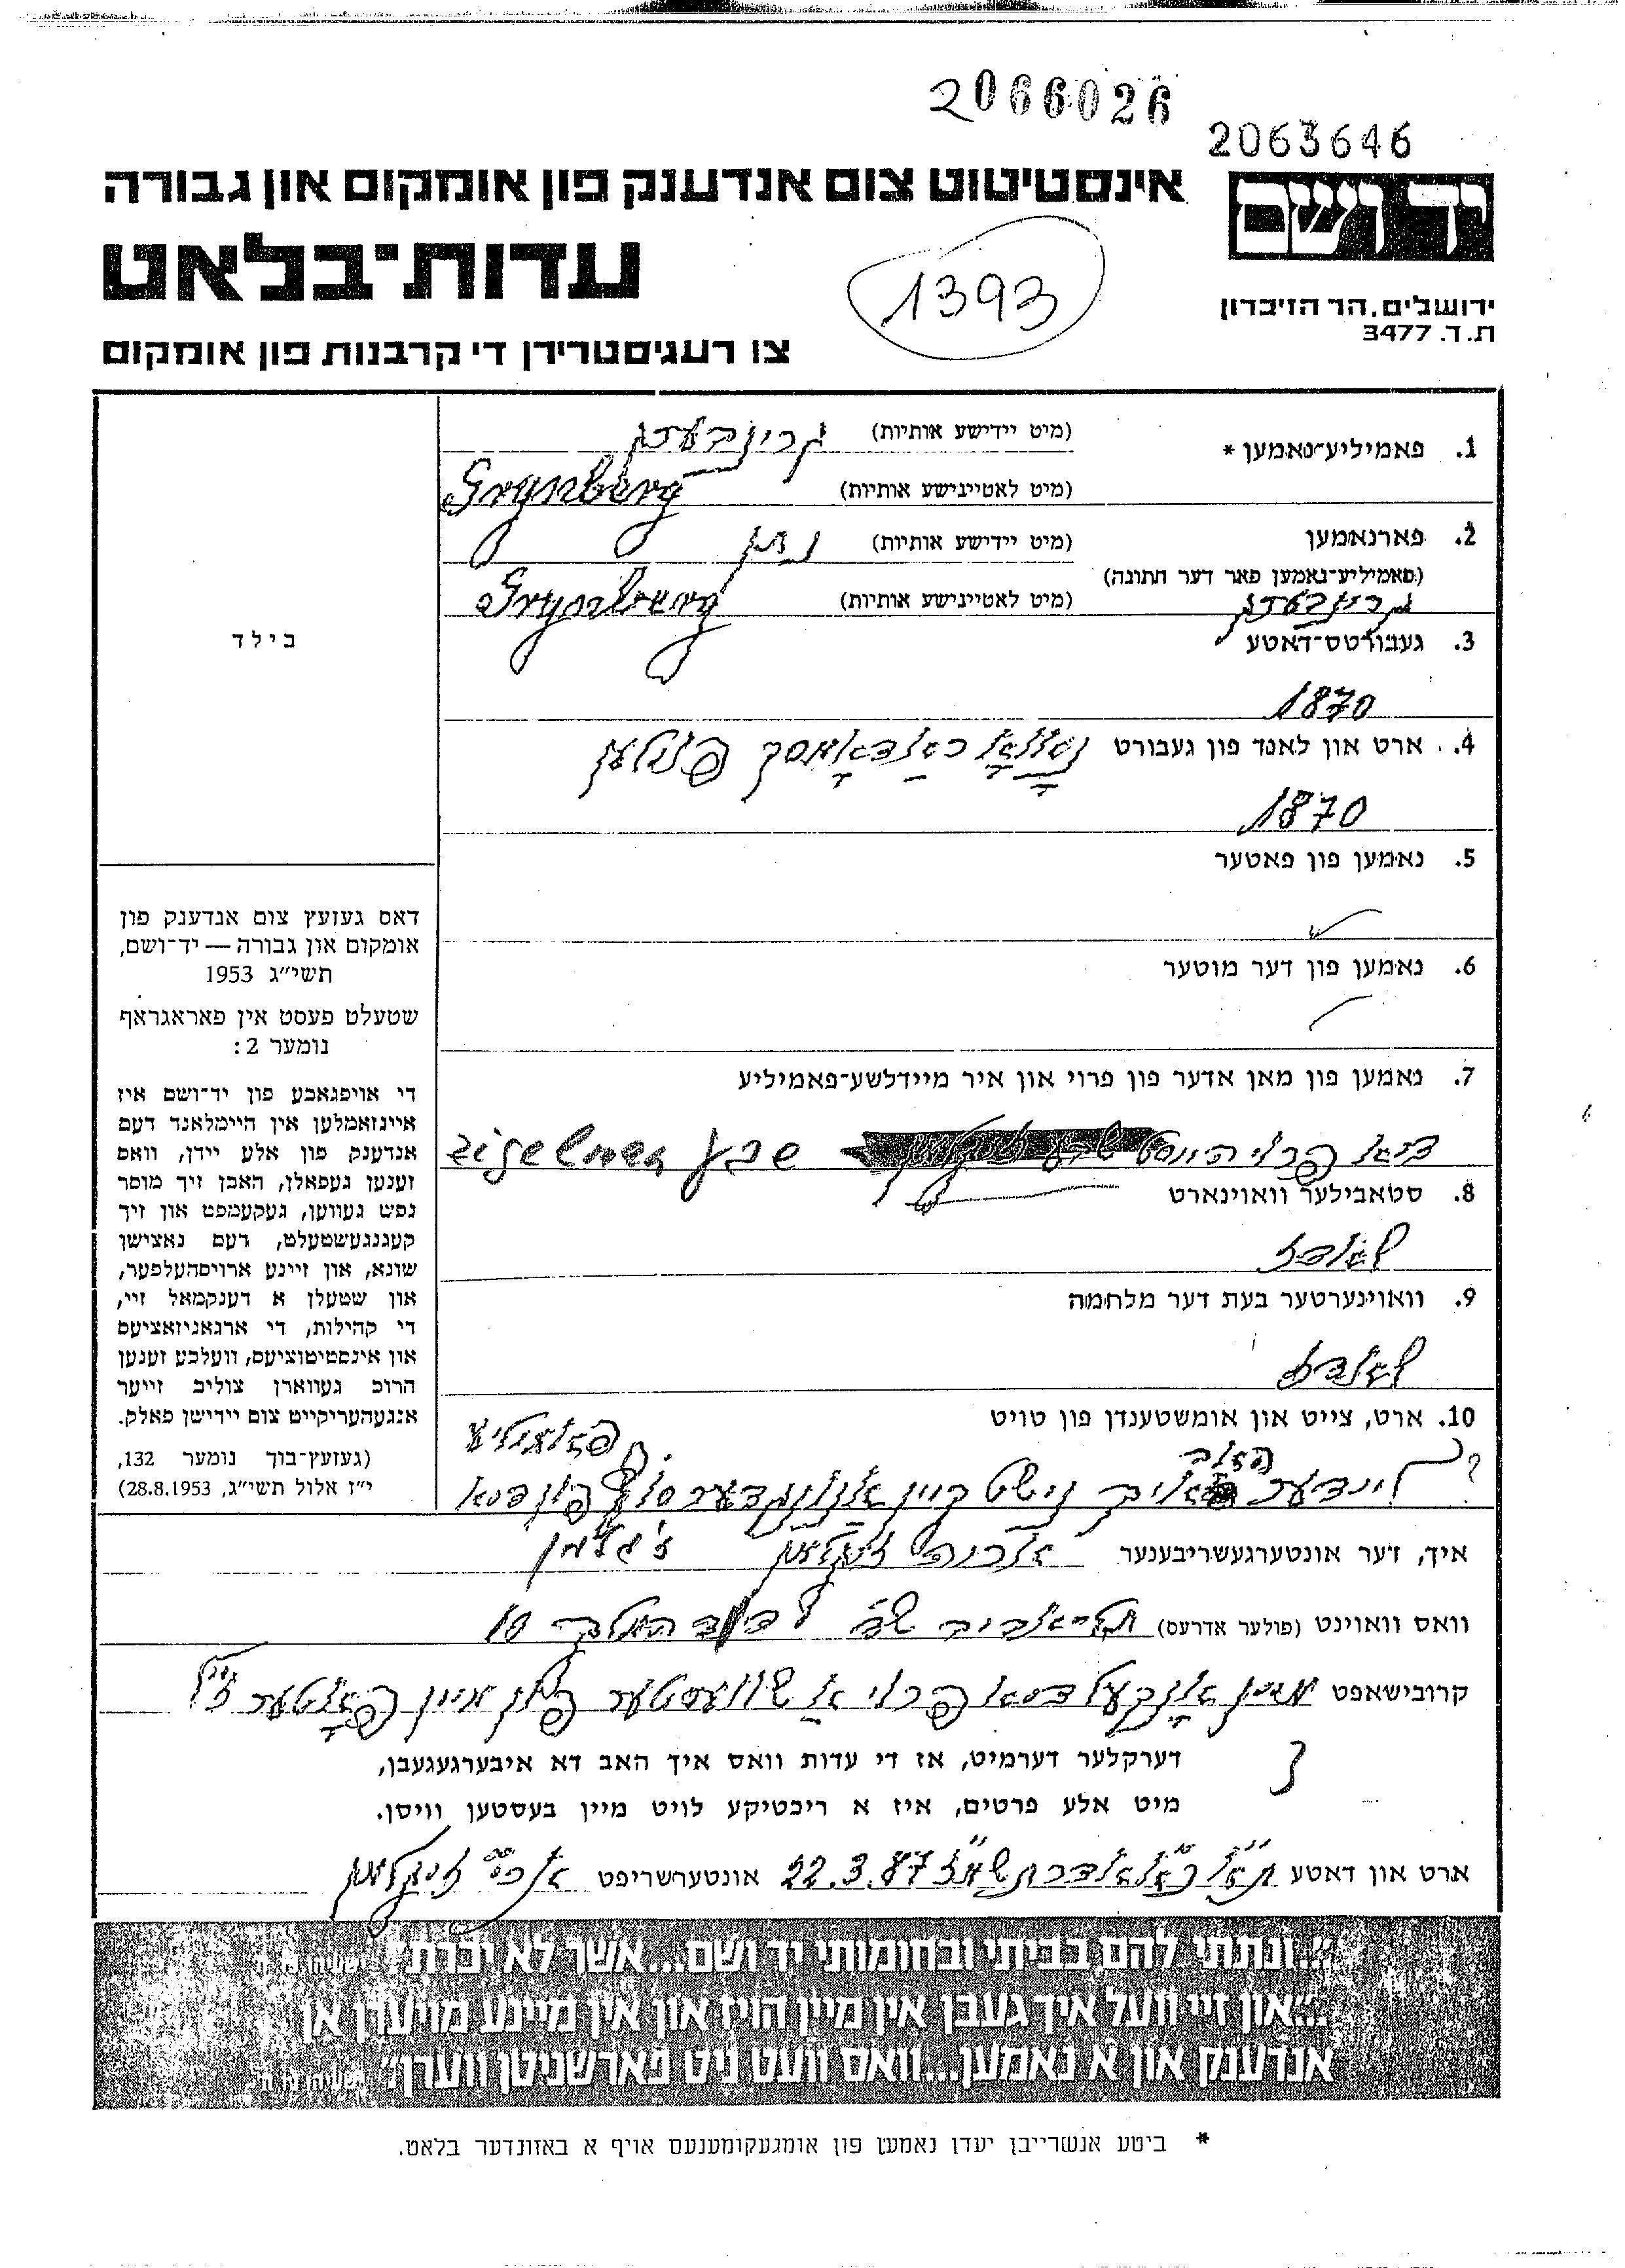 2066026
2063646
יד ושם
אינסטיטוט צום אנדענק פון אומקום און גבורה
עדות־בלאט
1393
ירושלים, הר הזיכרון
ת.ד. 3477
צו רעגיסטרירן די קרבנות פון אומקום
1. פאמיליע־נאמען * (מיט יידישע אותיות) גרינבערג
(מיט לאטייינישע אותיות) Grynberg
2. פארנאמען (מיט יידישע אותיות) נתן
(פאמיליע־נאמען פאר דער חתונה)
גרינבערג (מיט לאטייינישע אותיות) Grynberg
3. געבורטס־דאטע
1870
4. ארט און לאנד פון געבורט פוילען
1870
5. נאמען פון פאטער
6. נאמען פון דער מוטער
7. נאמען פון מאן אדער פון פרוי און איר מיידלשע־פאמיליע
פרוי הייסט שבע
8. סטאבילער וואוינארט
לאדז
9. וואוינערטער בעת דער מלחמה
לאדז
10. ארט, צייט און אומשטענדן פון טויט
פאמיליע
לינדער האב איך נישט קיין
בילד
דאס געזעץ צום אנדענק פון
אומקום און גבורה — יד־ושם,
תשי״ג 1953
שטעלט פעסט אין פאראגראף
נומער 2:
די אויפגאבע פון יד־ושם איז
איינזאמלען אין היימלאנד דעם
אנדענק פון אלע יידן, וואס
זענען געפאלן, האבן זיך מוסר
נפש געווען, געקעמפט און זיך
קעגנגעשטעלט, דעם נאצישן
שונא, און זיינע ארויסהעלפער,
און שטעלן א דענקמאל זיי,
די קהילות, די ארגאניזאציעס
און אינסטיטוציעס, וועלכע זענען
חרוב געווארן צוליב זייער
אנגעהעריקייט צום יידישן פאלק.
(געזעץ־בוך נומער 132,
י״ז אלול תשי״ג, 28.8.1953)
איך, דער אונטערגעשריבענער אריה זיגלמן
וואס וואוינט (פולער אדרעס) תל־אביב שד דוד המלך 10
קרובישאפט מיין אנקעל פרוי א שוועסטער פון מיין פאטער ז״ל
דערקלער דערמיט, אז די עדות וואס איך האב דא איבערגעגעבן,
מיט אלע פרטים, איז א ריכטיקע לויט מיין בעסטען וויסן.
ארט און דאטע ת״א 22.3.87 אונטערשריפט זיגלמן
״...ונתתי להם בביתי ובחומותי יד ושם...אשר לא יכרת״
״...און זיי וועל איך געבן אין מיין הויז און אין מיינע מויערן אן
אנדענק און א נאמען...וואס וועט ניט פארשניטן ווערן״
* ביטע אנשרייבן יעדן נאמען פון אומגעקומענעם אויף א באזונדער בלאט.